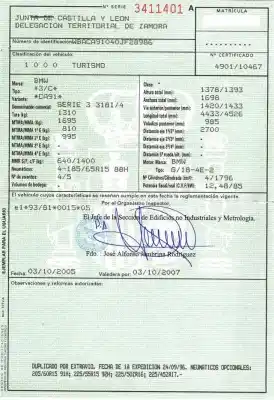 Nº SERIE 3411401 A
JUNTA DE CASTILLA Y LEON
DELEGACION TERRITORIAL DE ZAMORA
MATRICULA
Número de identificación WBACA91040JF28986
Clasificación del vehículo Nº CERTIFICADO
1000 TURISMO 4901/10467
Marca: BMW
Tipo: *3/C*
Variante: *CA91*
Denominación comercial: SERIE 3 318I/4
Tara (kg): 1310
MTMA/MMA (kg): 1695
MTMA/MMA 1º E (kg): 810
MTMA/MMA 2º E (kg): 995
MTMA/MMA 3º E (kg):
MTMA/MMA 4º E (kg):
MMR S/F, c/F (kg): 640/1400
Neumáticos: 4-185/65R15 88H
Nº de asientos: 4/5
Volumen de bodegas:
Altura total (mm): 1378/1393
Anchura total (mm): 1698
Vía anterior/posterior (mm): 1420/1433
Longitud total (mm): 4433/4526
Voladizo posterior (mm): 985
Distancia eje 1º/2º (mm): 2700
Motor: Marca: BMW
Tipo: G/18-4E-2
Nº Cilindros/Cilindrada (cm3): 4/1796
Potencia fiscal/real (C.V.F/kW): 12,48/85
El vehículo cuyas características se reseñan cumple en esta fecha la reglamentación vigente.
Por el Organismo Inspector,
e1*93/81*0015*05
El Jefe de la Sección de Edificios no Industriales y Metrología.
Fdo. José Alfonso Sambrina Rodríguez
Fecha: 03/10/2005 Valedera hasta: 03/10/2007
Observaciones y reformas autorizadas:
EJEMPLAR PARA EL USUARIO
DUPLICADO POR EXTRAVIO. FECHA DE 1ª EXPEDICION 24/09/96. NEUMATICOS OPCIONALES:
205/60R15 91H; 225/55R15 92H; 225/50ZR16; 225/45ZR17.-